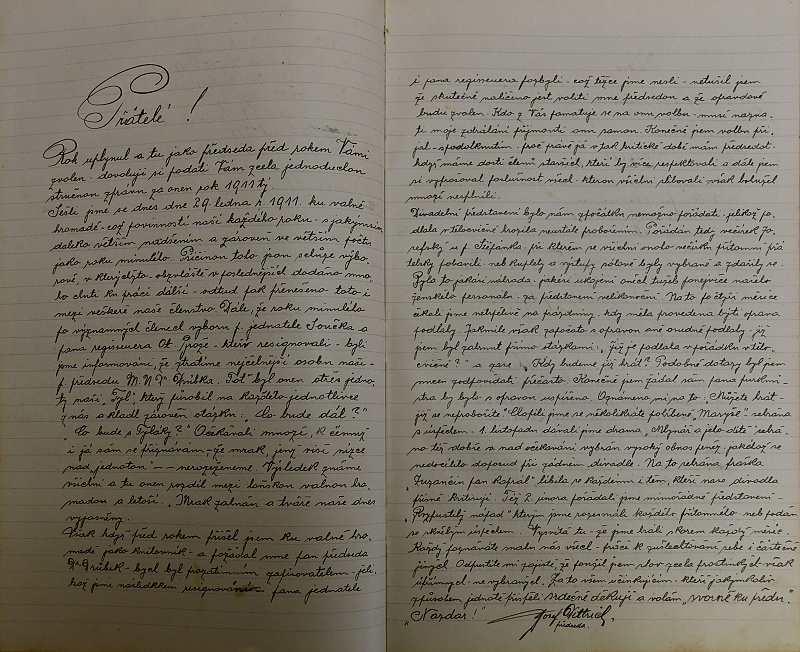 Přátelé!
Rok uplynul a tu jako předseda před rokem Vámi
zvolen dovoluji si podati Vám zcela jednoduchou
stručnou zprávu za onen rok 1911 tý.
Sešli jsme se dnes dne 29. ledna r. 1911. ku valné
hromadě - což povinností naší každého roku - s jakýmsi
daleko větším nadšením a zároveň ve větším počtu
jako roku minulého. Příčinou toho jsou schůze výbo-
rové, v kterýchžto - obzvláště v poslednějších dodáno mno-
ho chuti ku práci další - odtud pak přenešeno toto i
mezi veškeré naše členstvo. Dále, že roku minulého
po významných členech výboru p. jednatele Součka a
pana regisseura Ot. - kteří resignovali - byli
jsme informováni, že ztratíme nejčelnější osobu naši -
p. předsedu M. Hříbka. Toť byl onen otřes jedno-
ty naší „Tyl", který působil na každého jednotlivce
z nás a kladl zároveň otázku: „Co bude dál?"
„Co bude s Tyláky?" Očekávali mnozí, k čemuž
i já sám se přiznávám - že mrak, jenž visí nizce
nad „jednotou" — nerozeženeme. Výsledek známe
všichni a tu onen rozdíl mezi loňskou valnou hro-
madou a letoší. „Mrak zahnán a tváře naše dnes
vyjasněny.
Však když před rokem přišel jsem ku valné hro-
madě jako knihovník - a požádal mne pan předseda
Hříbek - bych byl pozatimním zapisovatelem - jeli-
kož jsme následkem resignování pana jednatele
i pana regisseura pozbyli - což těžce jsme nesli - netušil jsem
že skutečně nalíčeno jest voliti mne předsedou a že opravdově
budu zvolen. Kdo z Vás pamatuje se na onu volbu - musí nazna-
ti moje zdráhání přijmouti onu Konečně jsem volbu při-
jal - s podotknutím - proč právě já v tak kritické době mám předsedat -
když máme dosti členů starších, které by více respektovali a dále jsem
si vyprosoval poslušnost všech - kterou všichni slibovali však bohužel
mnozí nesplnili.
Divadelní představení bylo nám zpočátku nemožno pořádati - jelikož po-
dlaha v tělocvičně hrozila neustále probořením. Pořádán tedy večírek Jo-
sefský u p. Štefánka - při kterém se všichni onoho večírku přítomní přá-
telsky pobavili neb kuplety a výstupy sólové byly vybrané a zdařily se.
Byla to jakási náhrada - jakési ukojení oněch tužeb ponejvíce našeho
ženského personálu - za představení velikonoční. Na to po čtyři měsíce
čekali jsme netrpělivě na prázdniny, kdy měla provedena býti oprava
podlahy. Jakmile však započato s opravou oné osudné podlahy - již
jsem byl zahrnut přímo otázkami: „Již je podlaha v pořádku v tělo-
cvičně?" a zase: „Kdy budeme již hrát?" Podobné dotazy byl jsem
nucen zodpovídati přečasto. Konečně jsem žádal sám pana purkmi-
stra by bylo s opravou uspíšeno. Oznámeno mi na to: „Můžete hrát -
již se neproboříte" Chopili jsme se několikráte políbené, „Maryše" sehrána
s úspěchem. 1. listopadu dávali jsme drama „Mlynář a jeho dítě" sehrá-
no též dobře a nad očekávání vybrán vysoký obnos peněz, jakého se
nedocílilo doposud při žádném divadle. Na to sehrána fraška
„Furiančin pan Kaprál" líbila se každému i těm, kteří naše divadla
přísně kritisují. Též 2. února pořádali jsme mimořádné představení -
„Rozpustilý nápad" kterým jsme rozesmáli každého přítomného neb podán
se skvělým úspěchem. Vysvítá tu - že jsme hráli skorem každý měsíc.
Každý poznáváte snahu nás všech - práci k zušlechťování sebe i částečně
jiných. Odpusťte mi zajisté, že použil jsem slov zcela prostinkých však
upřímných - ne vybraných. Za to všem účinkujícím - kteří jakýmkoliv
způsobem jednotě přispěli srdečně děkuji a volám „svorně ku předu".
„Nazdar!" Josef Dittrich,
předseda.